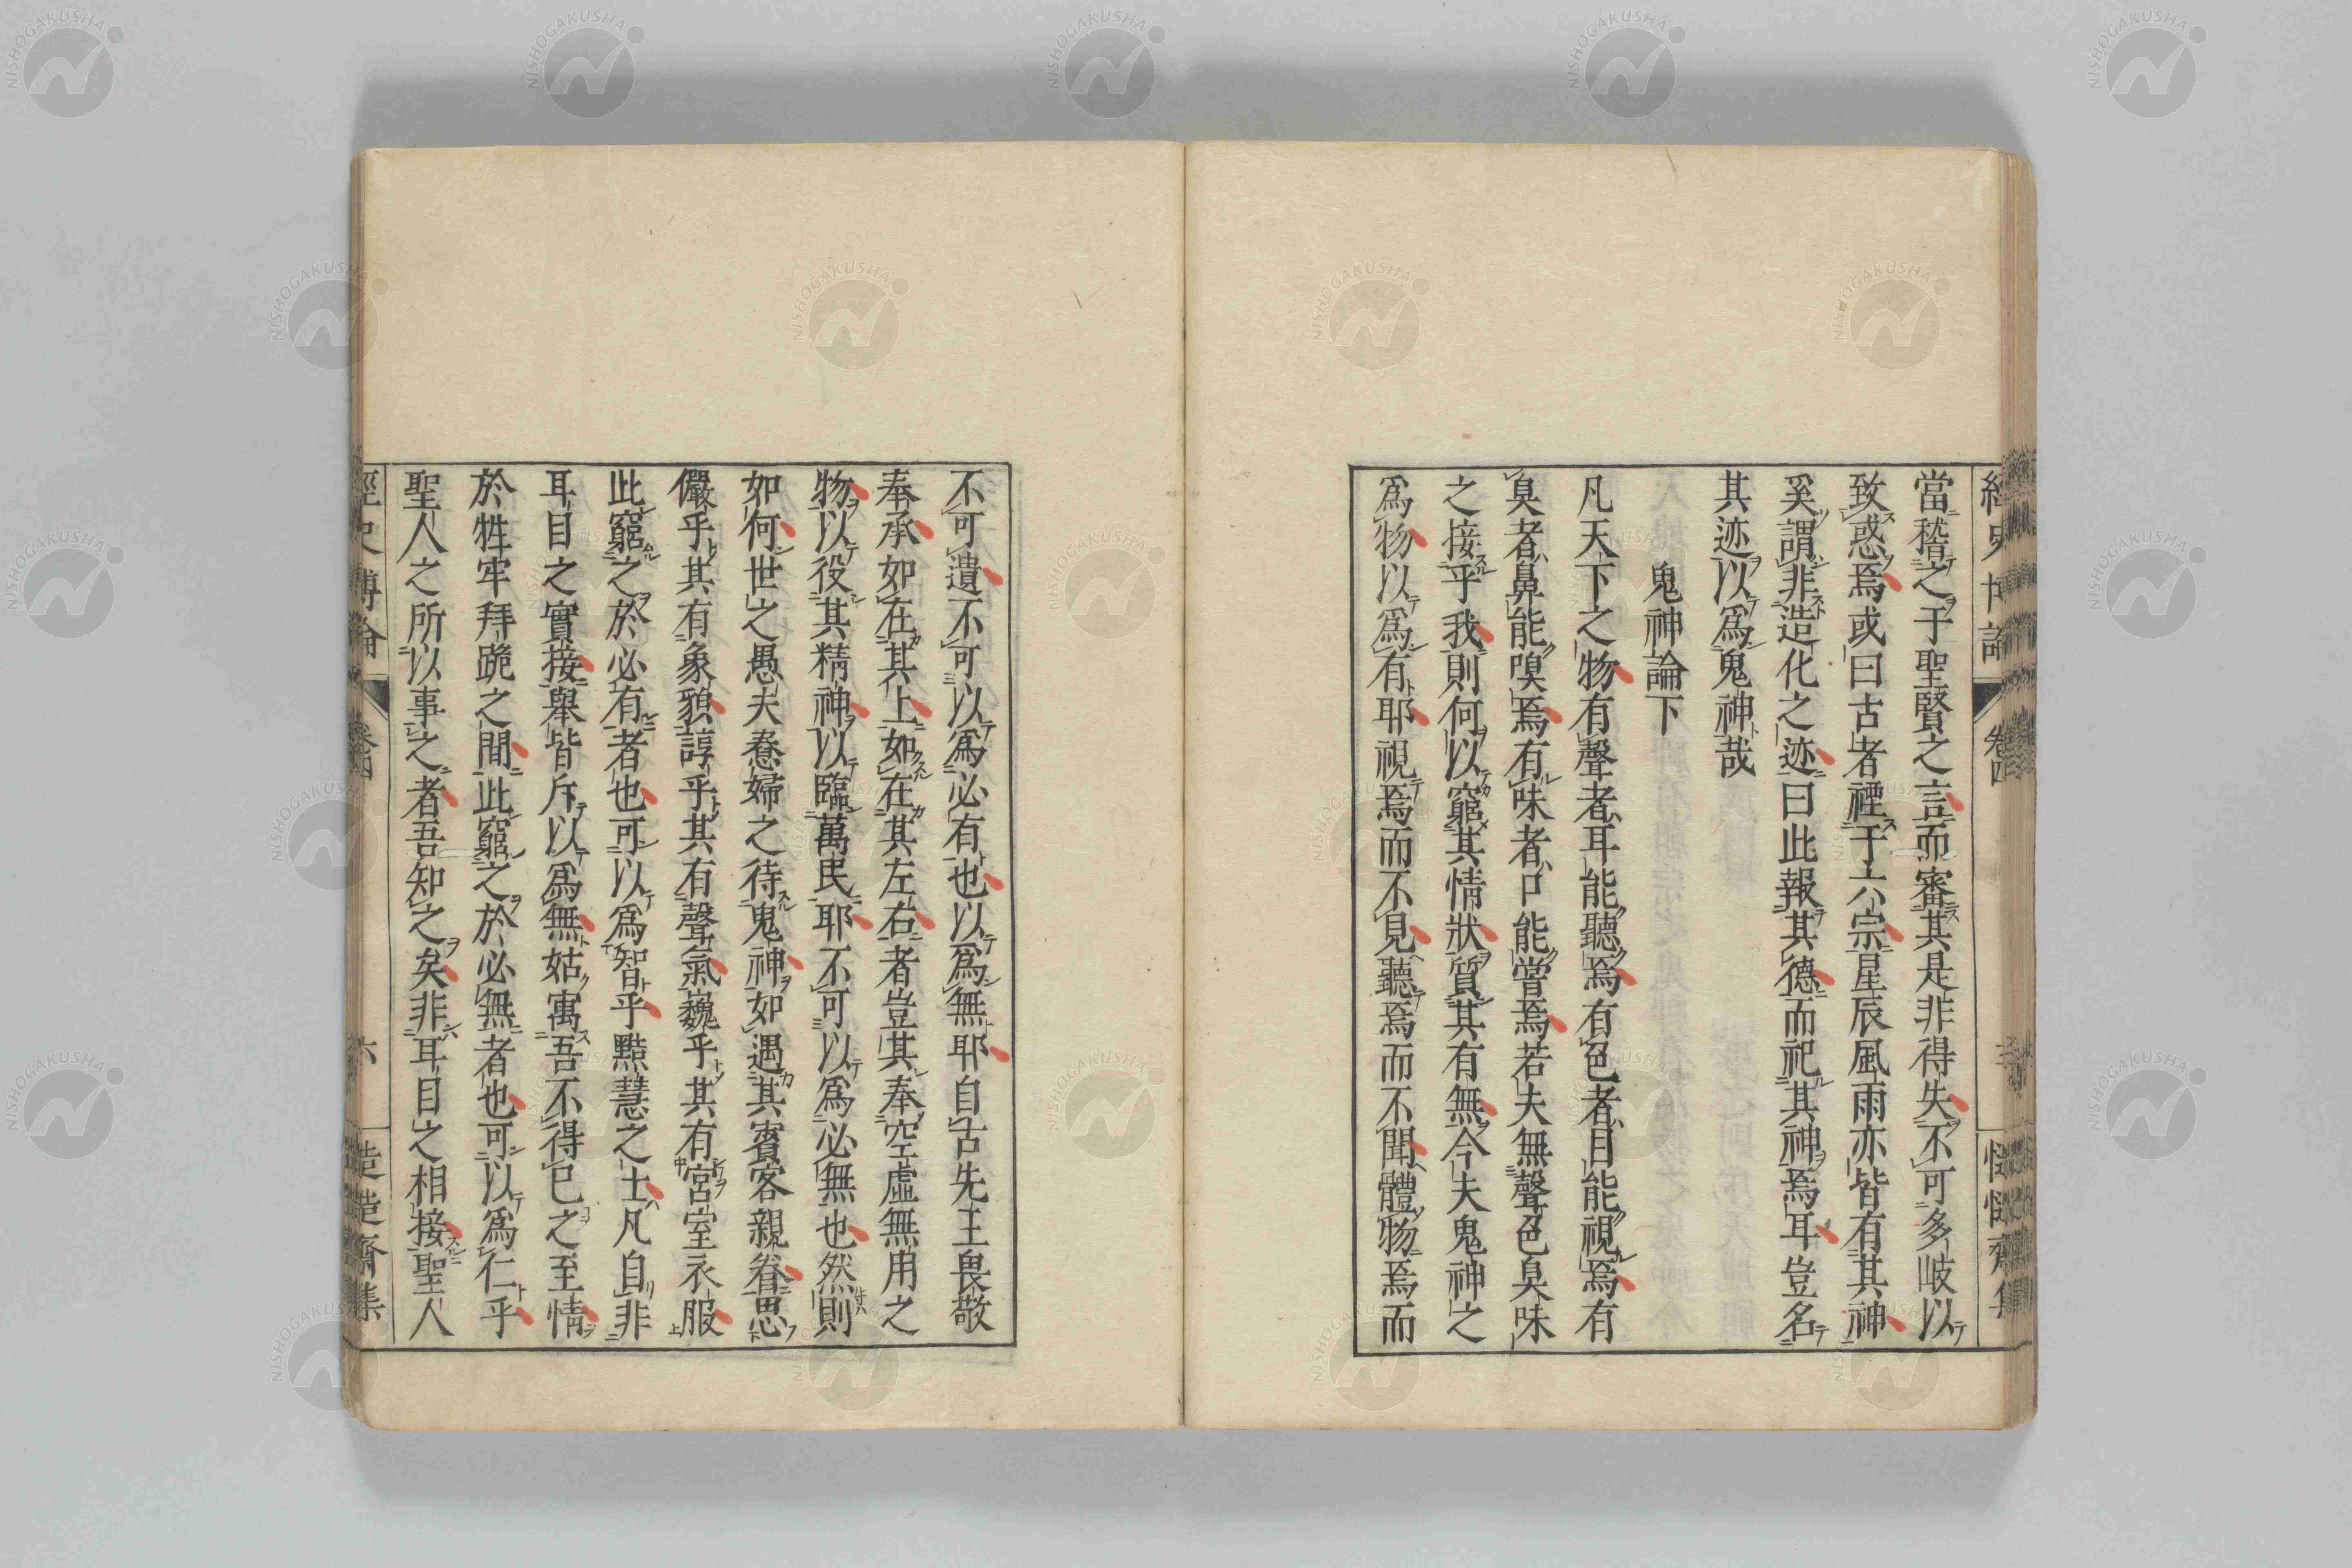 當稽之于聖賢之言而審其是非得失不可多岐以
致惑焉或曰古者禋于六宗星辰風雨亦皆有其神
奚謂非造化之迹曰此報其德而祀其神焉耳豈名
其迹以爲鬼神哉
鬼神論下
凡天下之物有聲者耳能聽焉有色者目能視焉有
臭者鼻能嗅焉有味者口能嘗焉若夫無聲色臭味
之接乎我則何以窮其情狀質其有無今夫鬼神之
爲物以爲有耶視焉而不見聽焉而不聞體物焉而
不可遺不可以爲必有也以爲無耶自古先王畏敬
奉承如在其上如在其左右者豈其奉空虛無用之
物以役其精神以臨萬民耶不可以爲必無也然則
如何世之愚夫惷婦之待鬼神如遇其賓客親眷思
儼乎其有象貌諄乎其有聲氣巍乎其有宮室衣服
此窮之於必有者也可以爲智乎黠慧之士凡自非
耳目之實接舉皆斥以爲無姑寓吾不得已之至情
於牲牢拜跪之間此窮之於必無者也可以爲仁乎
聖人之所以事之者吾知之矣非耳目之相接聖人
經史博論
卷四
六
NISHOGAKUSHA